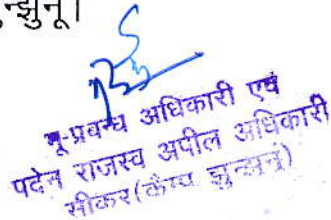 झुन्झुनू।
भू-प्रबन्ध अधिकारी एवं
पदेन राजस्व अपील अधिकारी
सीकर (कैम्प झुन्झुनूं)